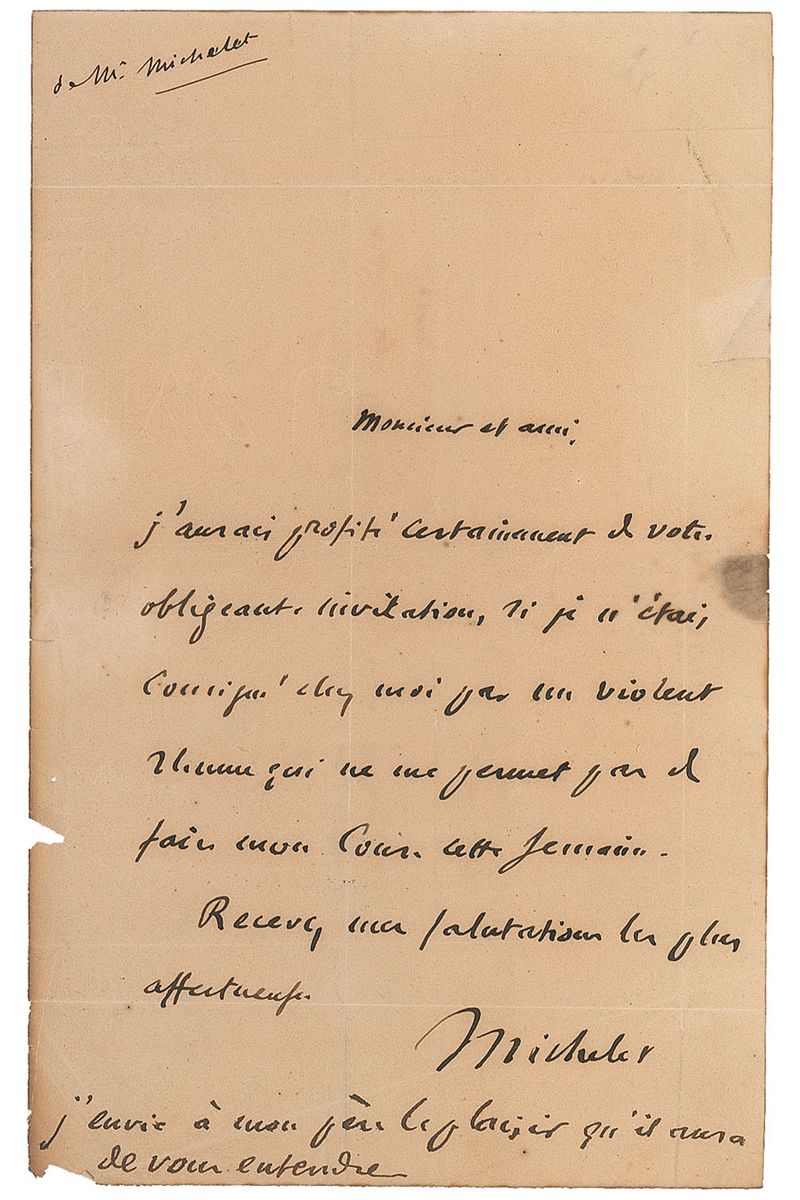 de Mr. Michelet
Monsieur et ami,
j'aurais profité certainement de votre
obligeante invitation, si je n'étais
consigné chez moi par un violent
rhume qui ne me permet pas de
faire mon Cours cette semaine.
Recevez mes salutations les plus
affectueuses
Michelet
j'envie à mon père le plaisir qu'il aura
de vous entendre